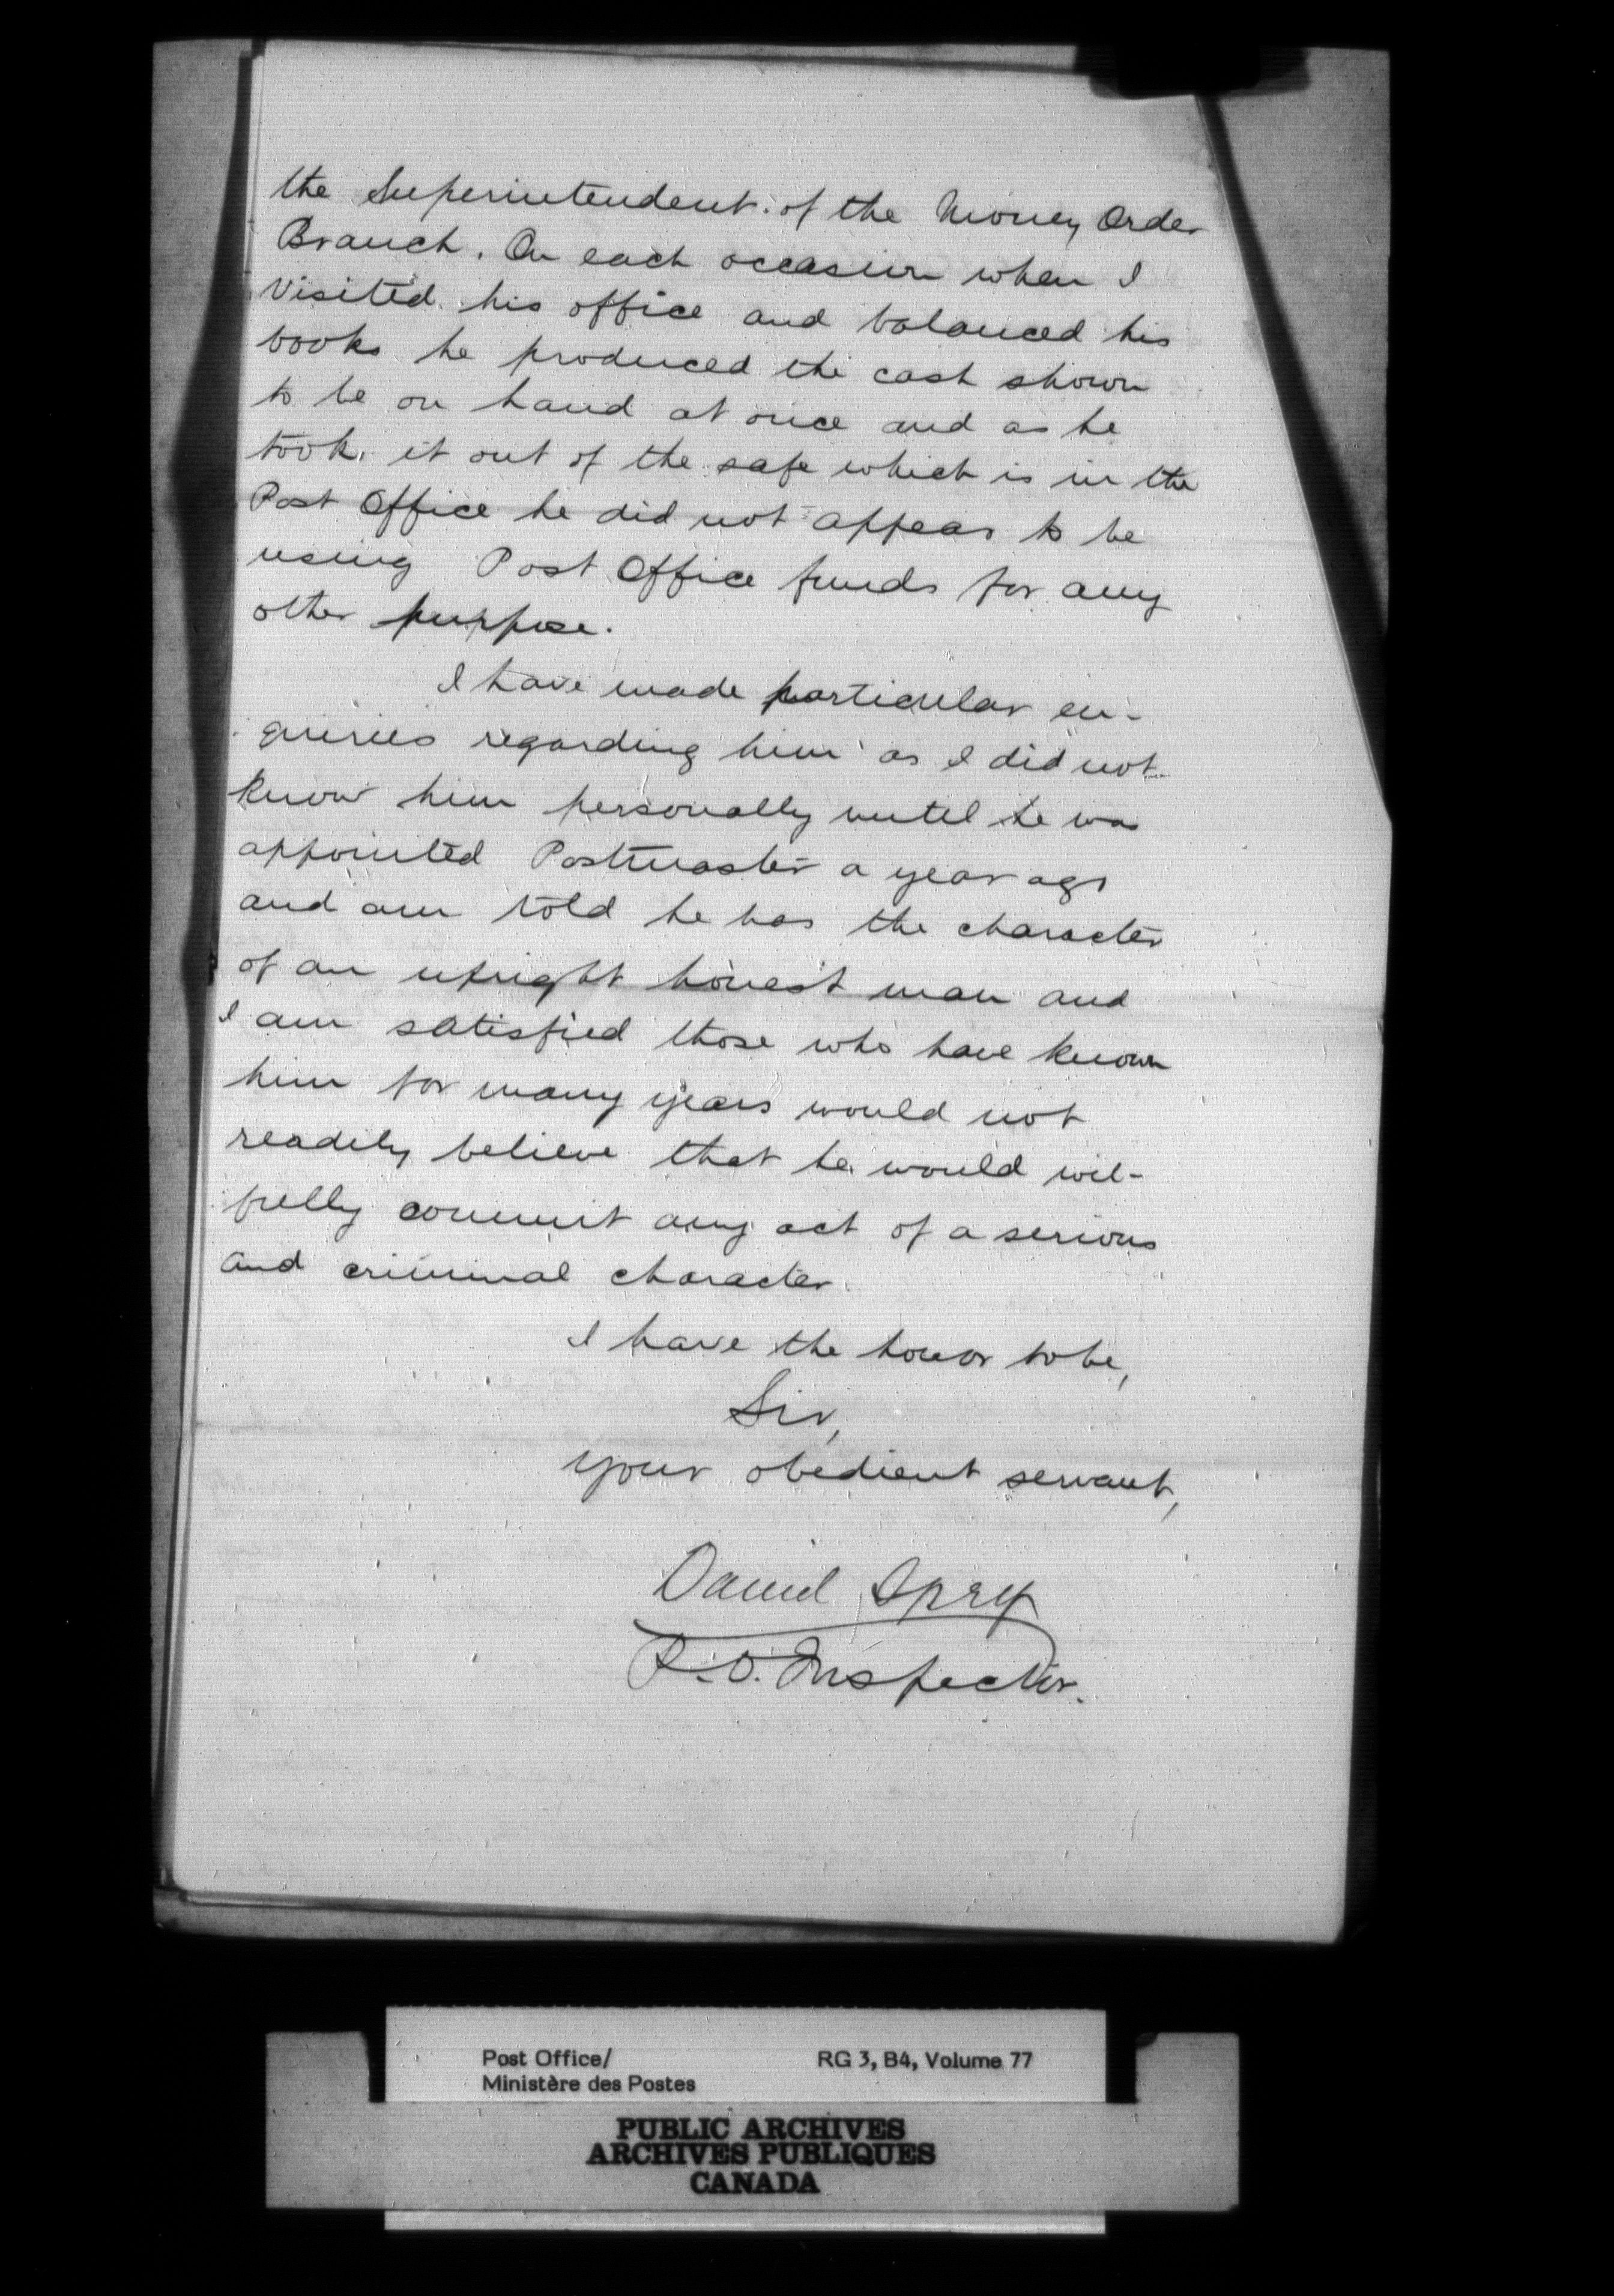 the Superintendent of the Money Order
Branch. On each occasion when I
visited his office and balanced his
books he produced the cash shown
to be on hand at once and as he
took it out of the safe which is in the
Post Office he did not appear to be
using Post Office funds for any
other purpose.
I have made particular en-
quiries regarding him as I did not
know him personally until he was
appointed Postmaster a year ago
and am told he has the character
of an upright honest man and
I am satisfied those who have known
him for many years would not
readily believe that he would wil-
fully commit any act of a serious
and criminal character.
I have the honor to be,
Sir,
Your obedient servant,
Daniel Spry
P.O. Inspector.
Post Office/ RG 3, B4, Volume 77
Ministère des Postes
PUBLIC ARCHIVES
ARCHIVES PUBLIQUES
CANADA